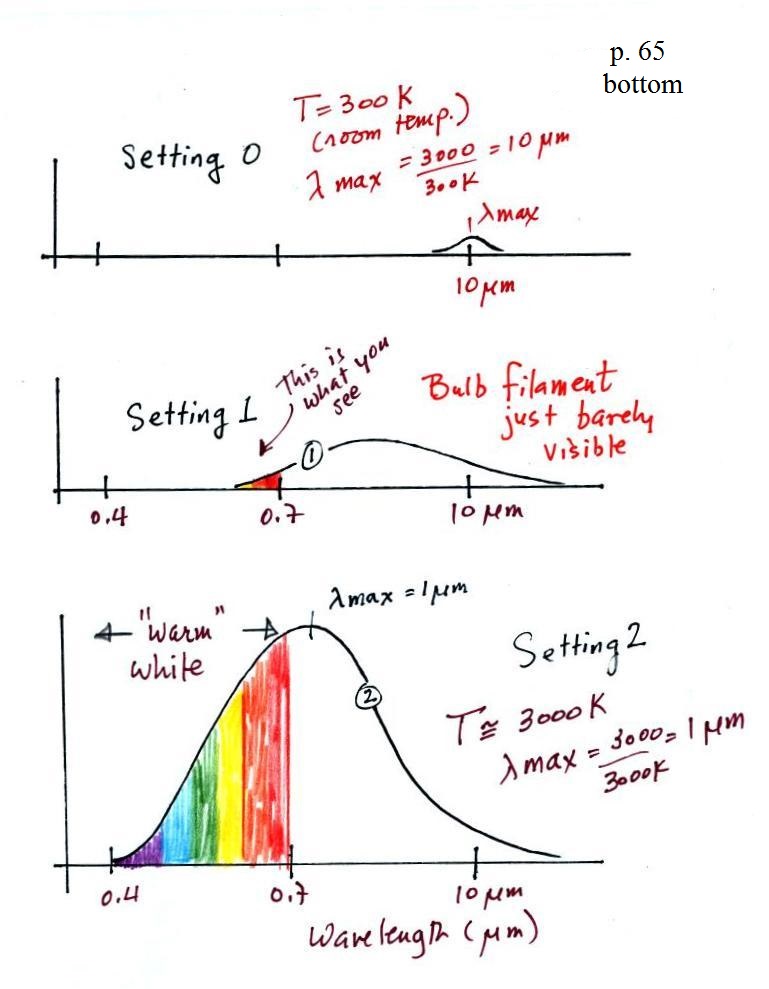 p. 65
bottom
T = 300 K
(room temp.)
Setting 0
λ max = 3000/300K = 10 μm
λmax
10 μm
This is
what you
see
Setting 1
①
Bulb filament
just barely
visible
0.4 0.7 10 μm
λmax = 1μm
"warm"
white
Setting 2
②
T ≅ 3000K
λ max = 3000/3000K = 1 μm
0.4 0.7 10 μm
Wavelength (μm)